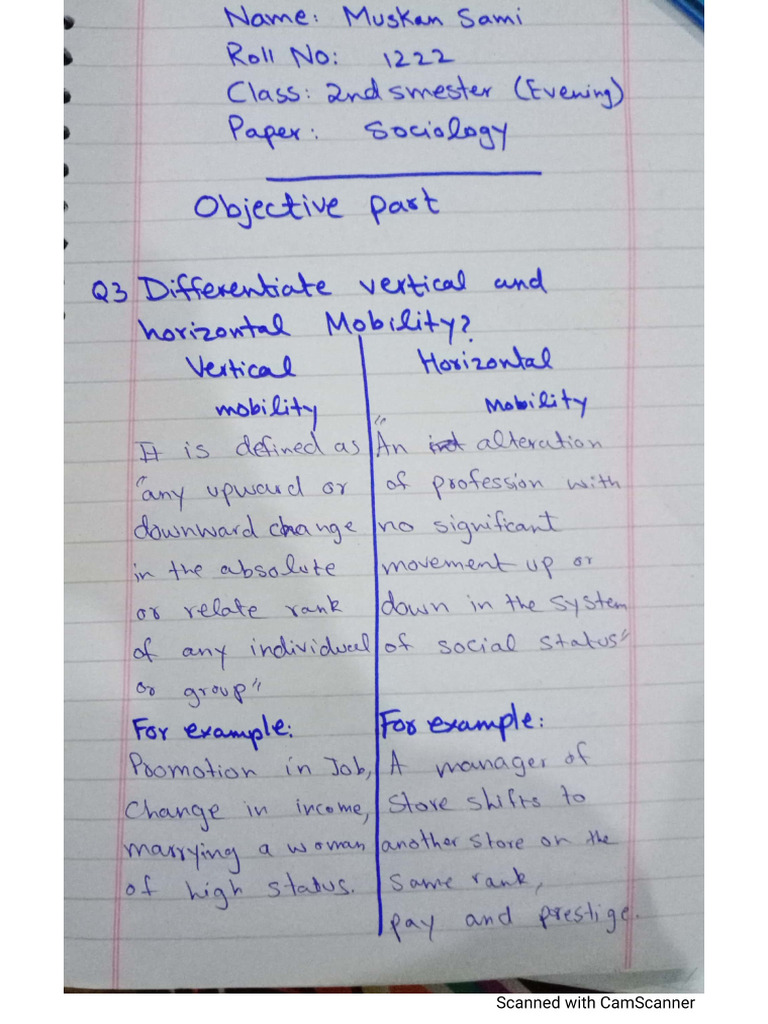 Name: Muskan Sami
Roll No: 1222
Class: 2nd smester (Evening)
Paper: Sociology
Objective part
Q3 Differentiate vertical and
horizontal Mobility?
Vertical
mobility
It is defined as
"any upward or
downward change
in the absolute
or relate rank
of any individual
or group"
For example:
Promotion in Job,
Change in income,
marrying a woman
of high status.
Horizontal
Mobility
"An alteration
of profession with
no significant
movement up or
down in the system
of social status"
For example:
A manager of
Store shifts to
another store on the
same rank,
pay and prestige.
Scanned with CamScanner